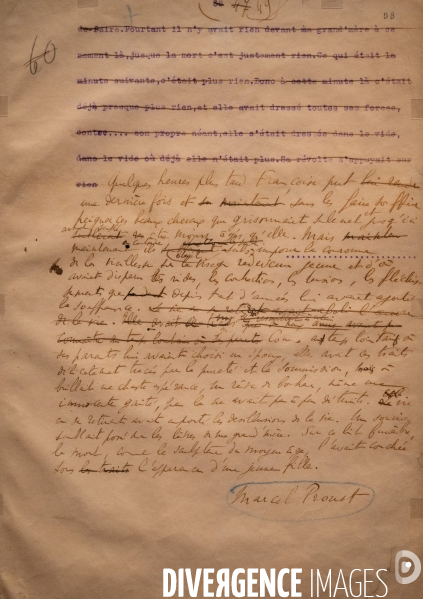 58
60
de faire.Pourtant il n'y avait rien devant ma grand'mère à ce
moment là,jusque la mort c'est justement rien.Ce qui était la
minute suivante,c'était plus rien.Donc à cette minute là c'était
déjà presque plus rien,et elle avait dressé toutes ses forces,
contre.... son propre néant,elle s'était dressée dans le vide,
dans le vide où déjà elle n'était plus.Sa révolte s'appuyait sur
rien Quelques heures plus tard Françoise put
une dernière fois et sans les faire souffrir
peigner ces beaux cheveux qui grisonnaient seulement jusqu'ici
moins âgés qu'elle. Mais
maintenant la couronne
de la vieillesse le visage redevenu jeune et d'où
avaient disparu les rides, les contractions, les
depuis tant d'années lui avait ajoutés
la souffrance.
de la vie.
Comme au temps lointain où
ses parents lui avaient choisi un époux, elle avait les traits
délicatement tracés par la pureté et la soumission,
brillait une chaste espérance, un rêve de bonheur, même une
innocente gaîté, que les années avaient peu à peu détruits. La vie
en se retirant avait emporté les désillusions de la vie. Un sourire
semblait posé sur les lèvres de ma grand'mère. Sur ce lit funèbre,
la mort, comme le sculpteur du moyen âge, l'avait couchée
sous l'apparence d'une jeune fille.
Marcel Proust
DIVERGENCE IMAGES